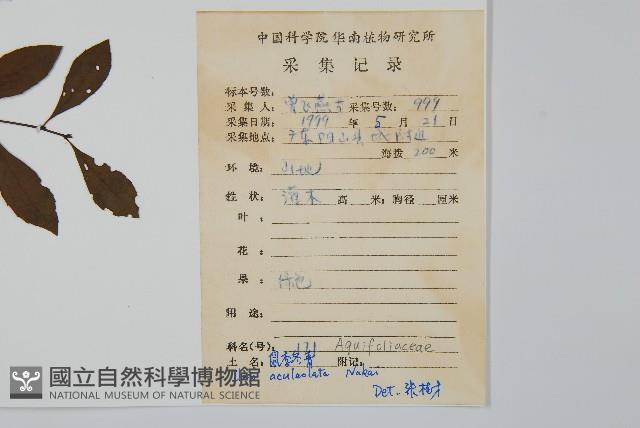 中国科学院华南植物研究所
采集记录
标本号数:
采集人: 曾飞燕 采集号数: 999
采集日期: 1999 年 5 月 21 日
采集地点: 广东阳山 附近
海拨 200 米
环境: 山地
性状: 灌木 高 米; 胸径 厘米
叶:
花:
果: 绿色
用途:
科名(号): 171 Aquifoliaceae
土名: 附记:
aculeolata Nakai
Det.
國立自然科學博物館
NATIONAL MUSEUM OF NATURAL SCIENCE